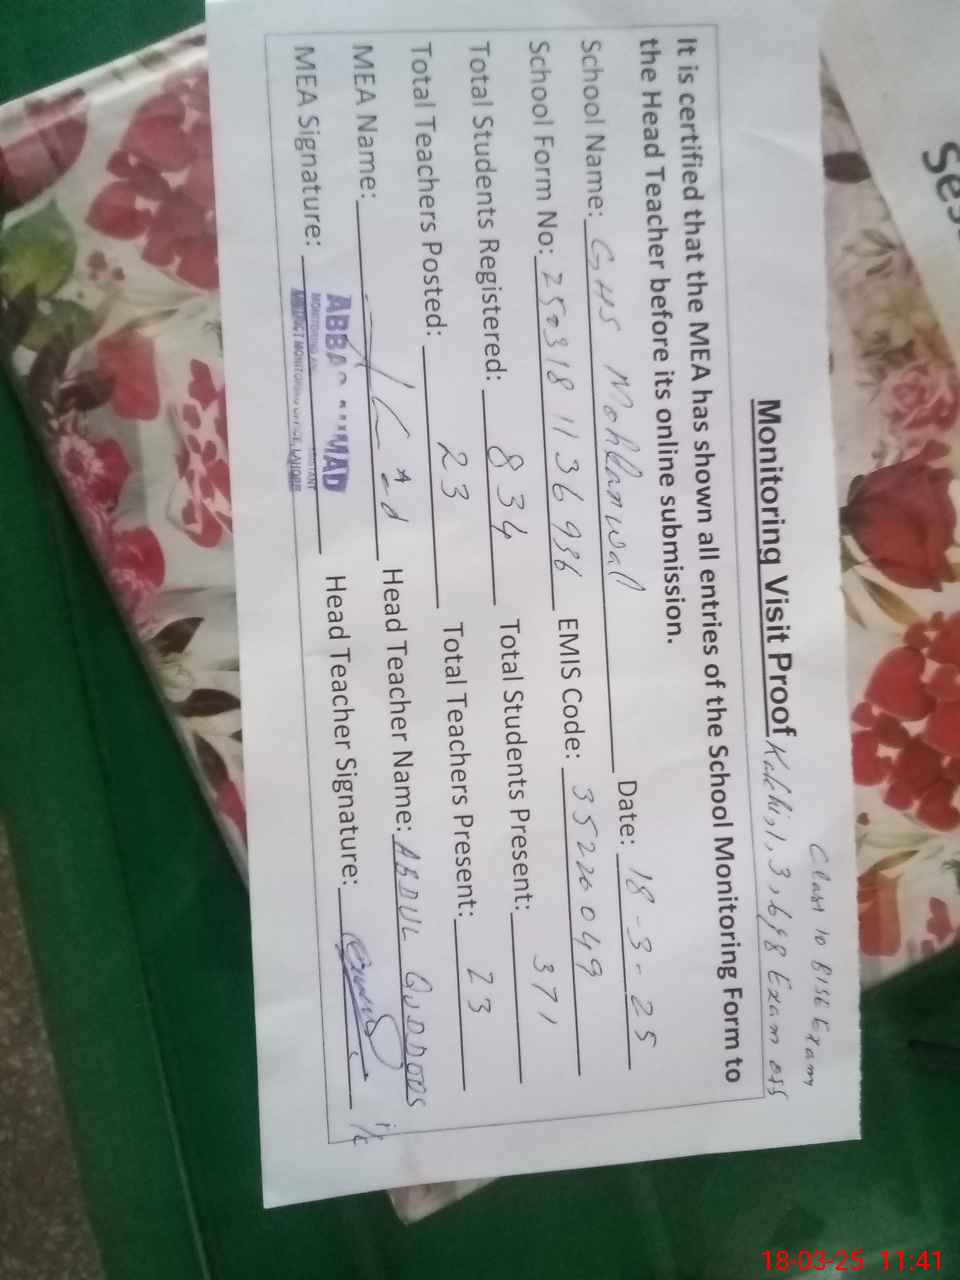 Class 10 BISE Exam
Monitoring Visit Proof Katchi, 1, 3, 6 & 8 Exam off
It is certified that the MEA has shown all entries of the School Monitoring Form to
the Head Teacher before its online submission.
School Name: GHS Mohlanwall Date: 18-3-25
School Form No: 250318 1136936 EMIS Code: 35220049
Total Students Registered: 834 Total Students Present: 371
Total Teachers Posted: 23 Total Teachers Present: 23
MEA Name: Head Teacher Name: ABDUL QUDDOOS
i/c
MEA Signature: Head Teacher Signature:
DISTRICT MONITORING OFFICE, LAHORE
Ses
18-03-25 11:41